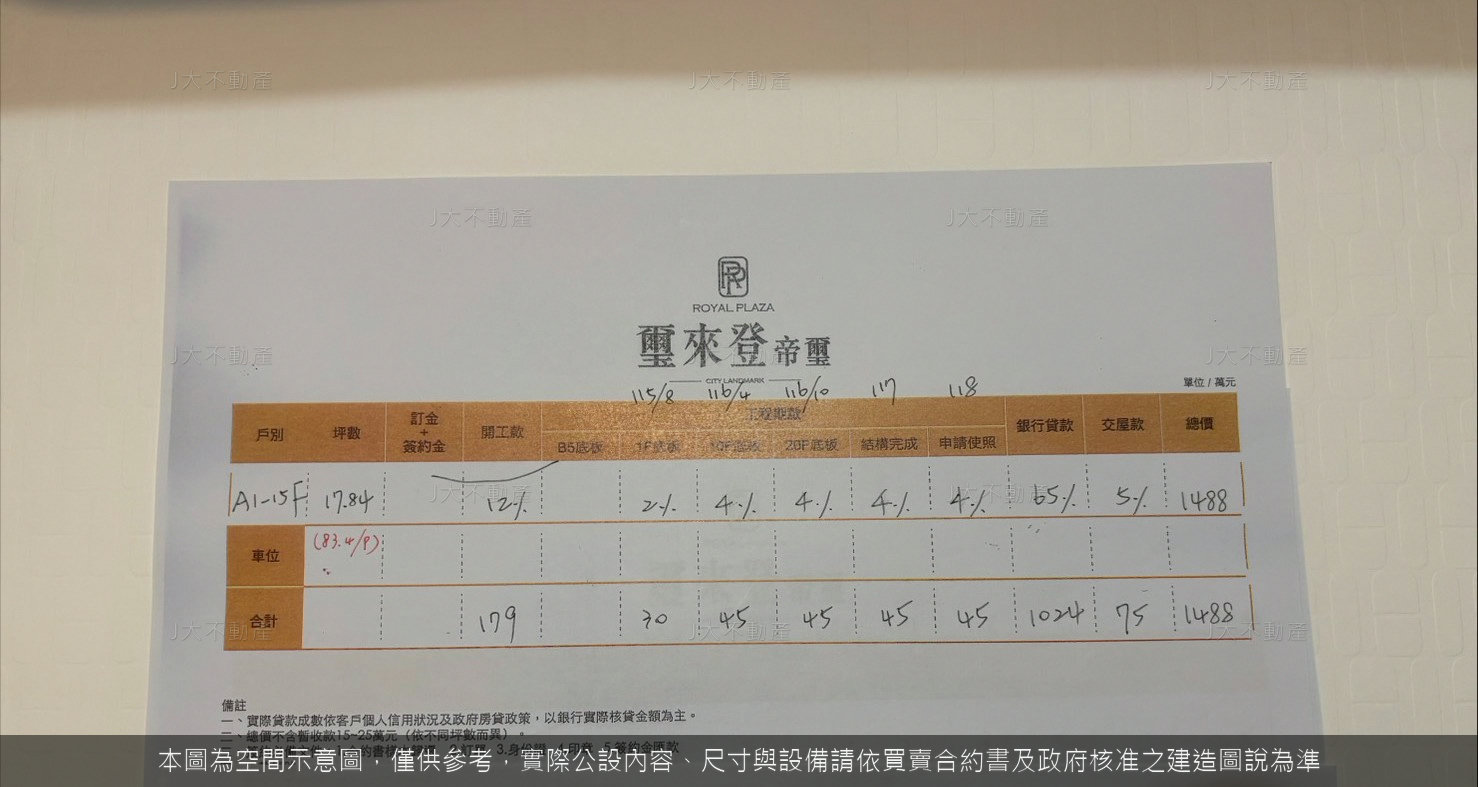 J大不動產 J大不動產 J大不動產
J大不動產 J大不動產
RP
ROYAL PLAZA
璽來登帝璽
J大不動產 J大不動產
CITY LANDMARK
單位 / 萬元
115/8 116/4 116/10 117 118
戶別 坪數 訂金+簽約金 開工款 工程期款 銀行貸款 交屋款 總價
B5底板 1F底板 10F底板 20F底板 結構完成 申請使照
J大不動產 J大不動產
A1-15F 17.84 12% 2% 4% 4% 4% 4% 65% 5% 1488
車位 (83.4/P)
合計 179 30 45 45 45 45 1024 75 1488
J大不動產 J大不動產 J大不動產
備註
一、實際貸款成數依客戶個人信用狀況及政府房貸政策，以銀行實際核貸金額為主。
二、總價不含暫收款15~25萬元（依不同坪數而異）。
本圖為空間示意圖，僅供參考，實際公設內容、尺寸與設備請依買賣合約書及政府核准之建造圖說為準